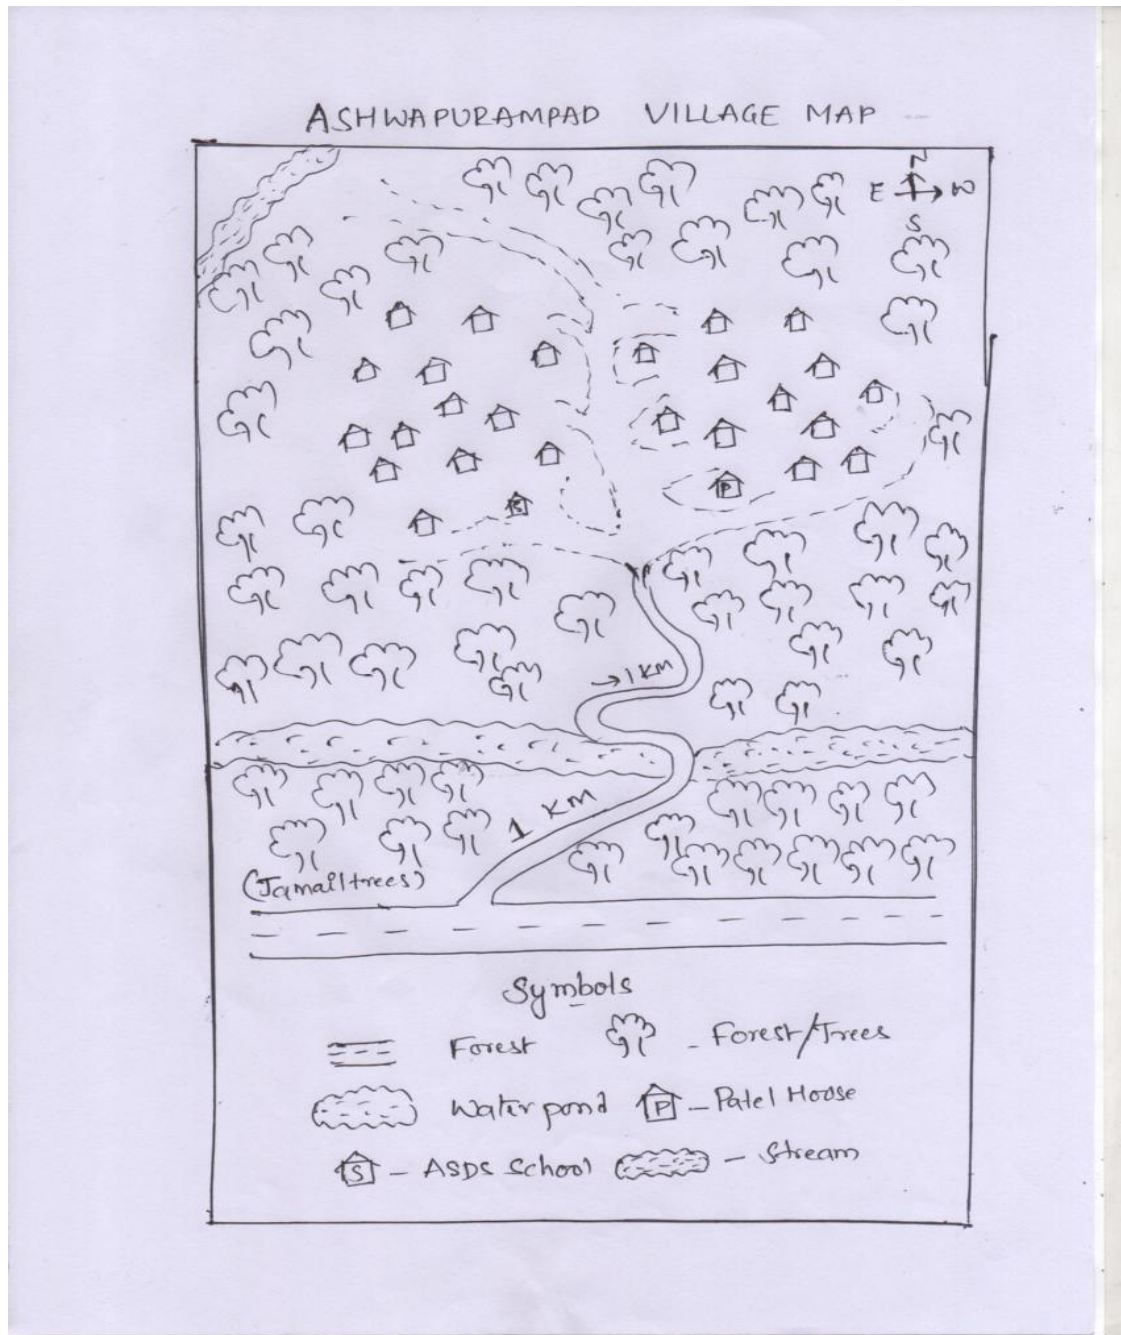 ASHWAPURAMPAD VILLAGE MAP
N
E W
S
S
P
→ 1 KM
1 KM
(Jamailtrees)
Symbols
Forest - Forest/Trees
Water pond P - Patel House
S - ASDS School - Stream